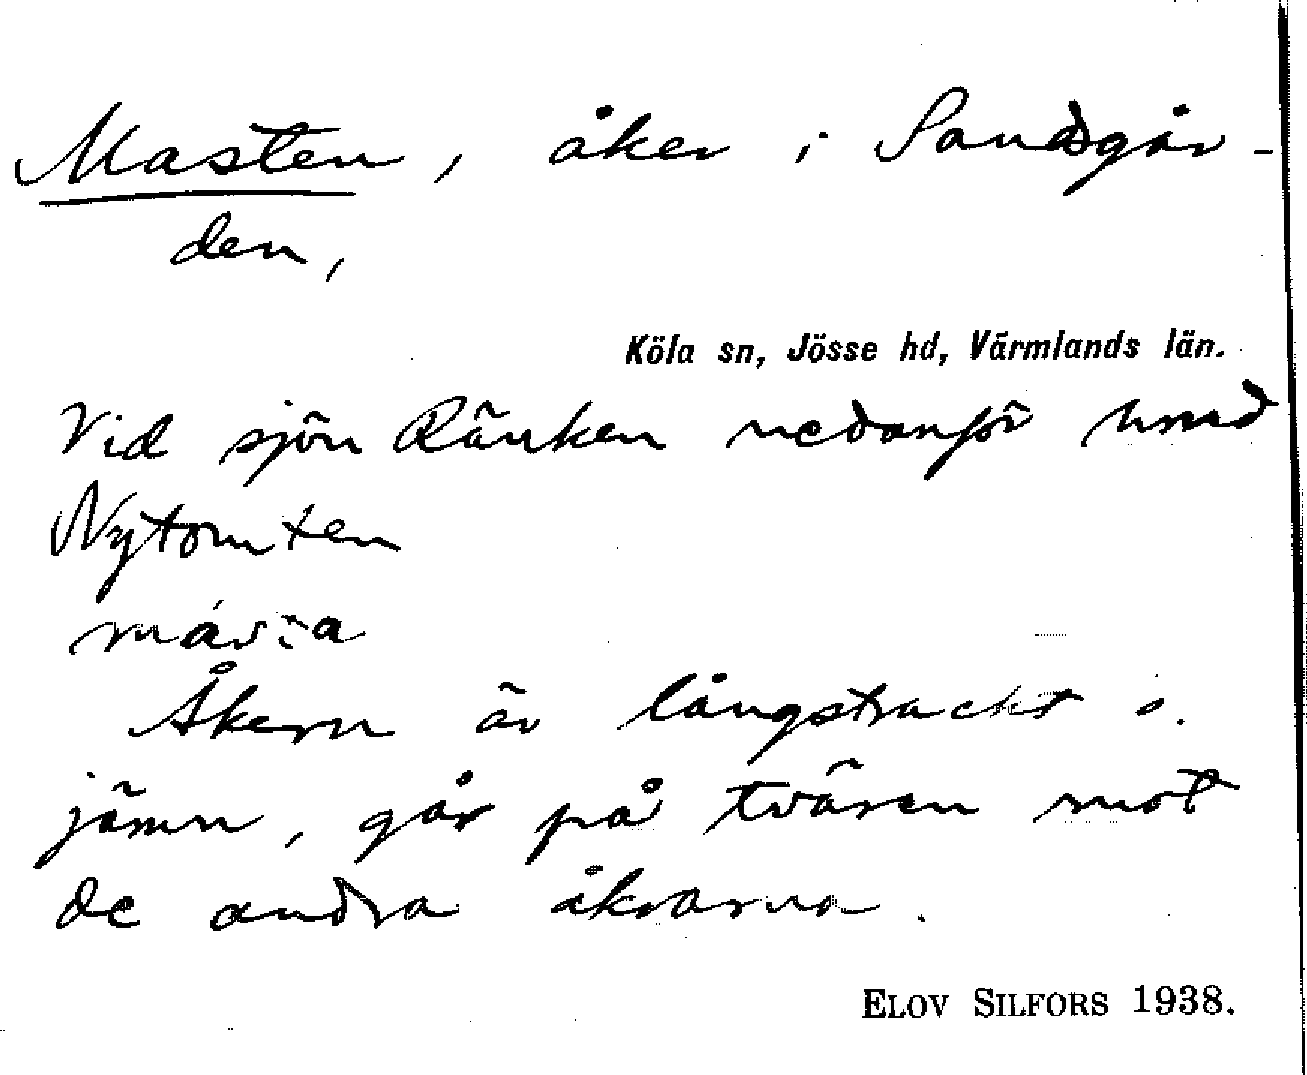 Masten, åker i Sandsgår-
den,
Köla sn, Jösse hd, Värmlands län.
Vid sjön Ränken nedanför
Nytomten
Åkern är långsträckt o.
jämn, går på tvären mot
de andra åkrarna.
ELOV SILFORS 1938.